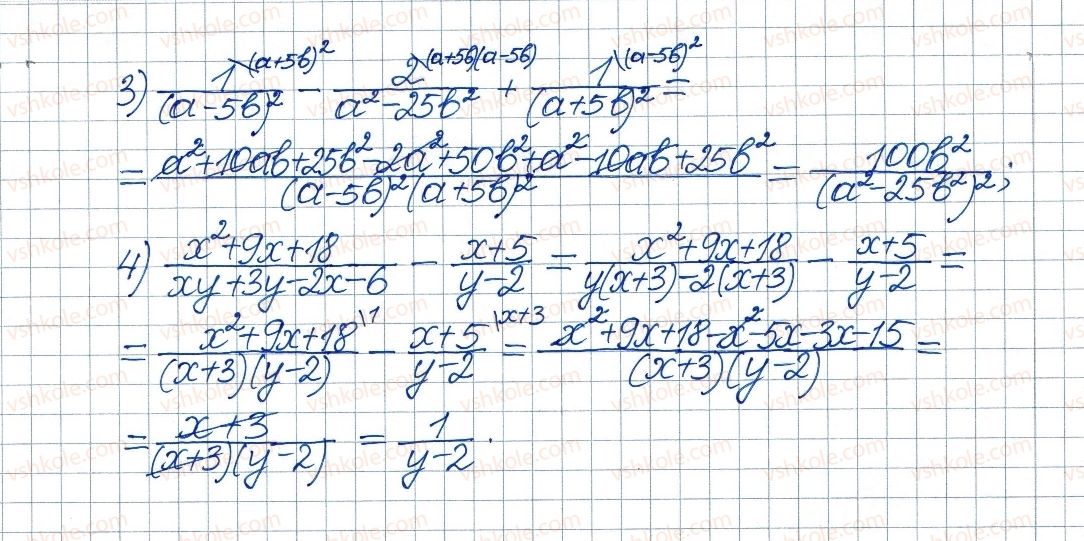 3) 1\(a+5b)² / (a-5b)² - 2\(a+5b)(a-5b) / a²-25b² + 1\(a-5b)² / (a+5b)² =
= a²+10ab+25b²-2a²+50b²+a²-10ab+25b² / (a-5b)²(a+5b)² = 100b² / (a²-25b²)²;
4) x²+9x+18 / xy+3y-2x-6 - x+5 / y-2 = x²+9x+18 / y(x+3)-2(x+3) - x+5 / y-2 =
= x²+9x+18\1 / (x+3)(y-2) - x+5\x+3 / y-2 = x²+9x+18-x²-5x-3x-15 / (x+3)(y-2) =
= x+3 / (x+3)(y-2) = 1 / y-2.
vshkole.com